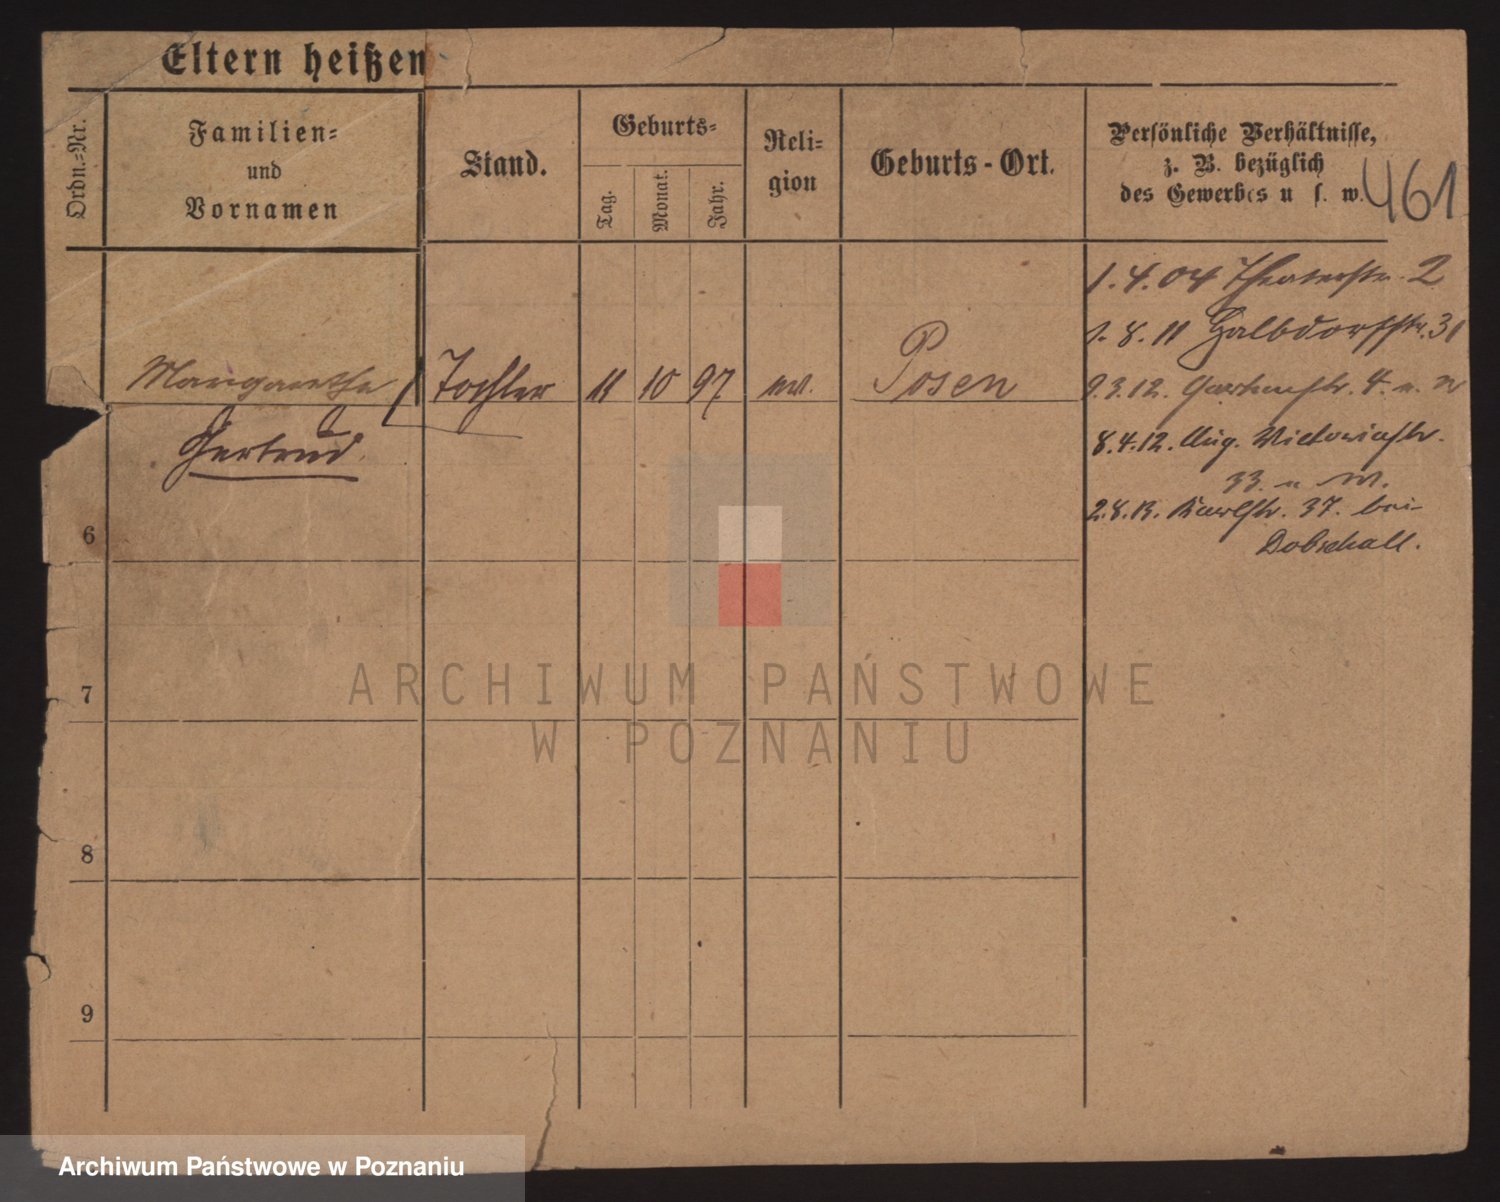 Eltern heißen
Ordn.-Nr.
Familien-
und
Vornamen
Stand.
Geburts-
Tag.
Monat.
Jahr.
Reli-
gion
Geburts-Ort.
Persönliche Verhältnisse,
z. B. bezüglich
des Gewerbes u. s. w.
461
1.4.04 Theaterstr. 2
1.8.11 Halbdorfstr. 31
Margarethe Tochter 11 10 97 ev. Posen
9.3.12. Gartenstr. 4. u.
Gertrud.
8.4.12. Aug. Victoriastr.
33. u. W.
2.8.13. Karlstr. 37. bei
Dobschall.
6
7
8
9
ARCHIWUM PAŃSTWOWE
W POZNANIU
Archiwum Państwowe w Poznaniu